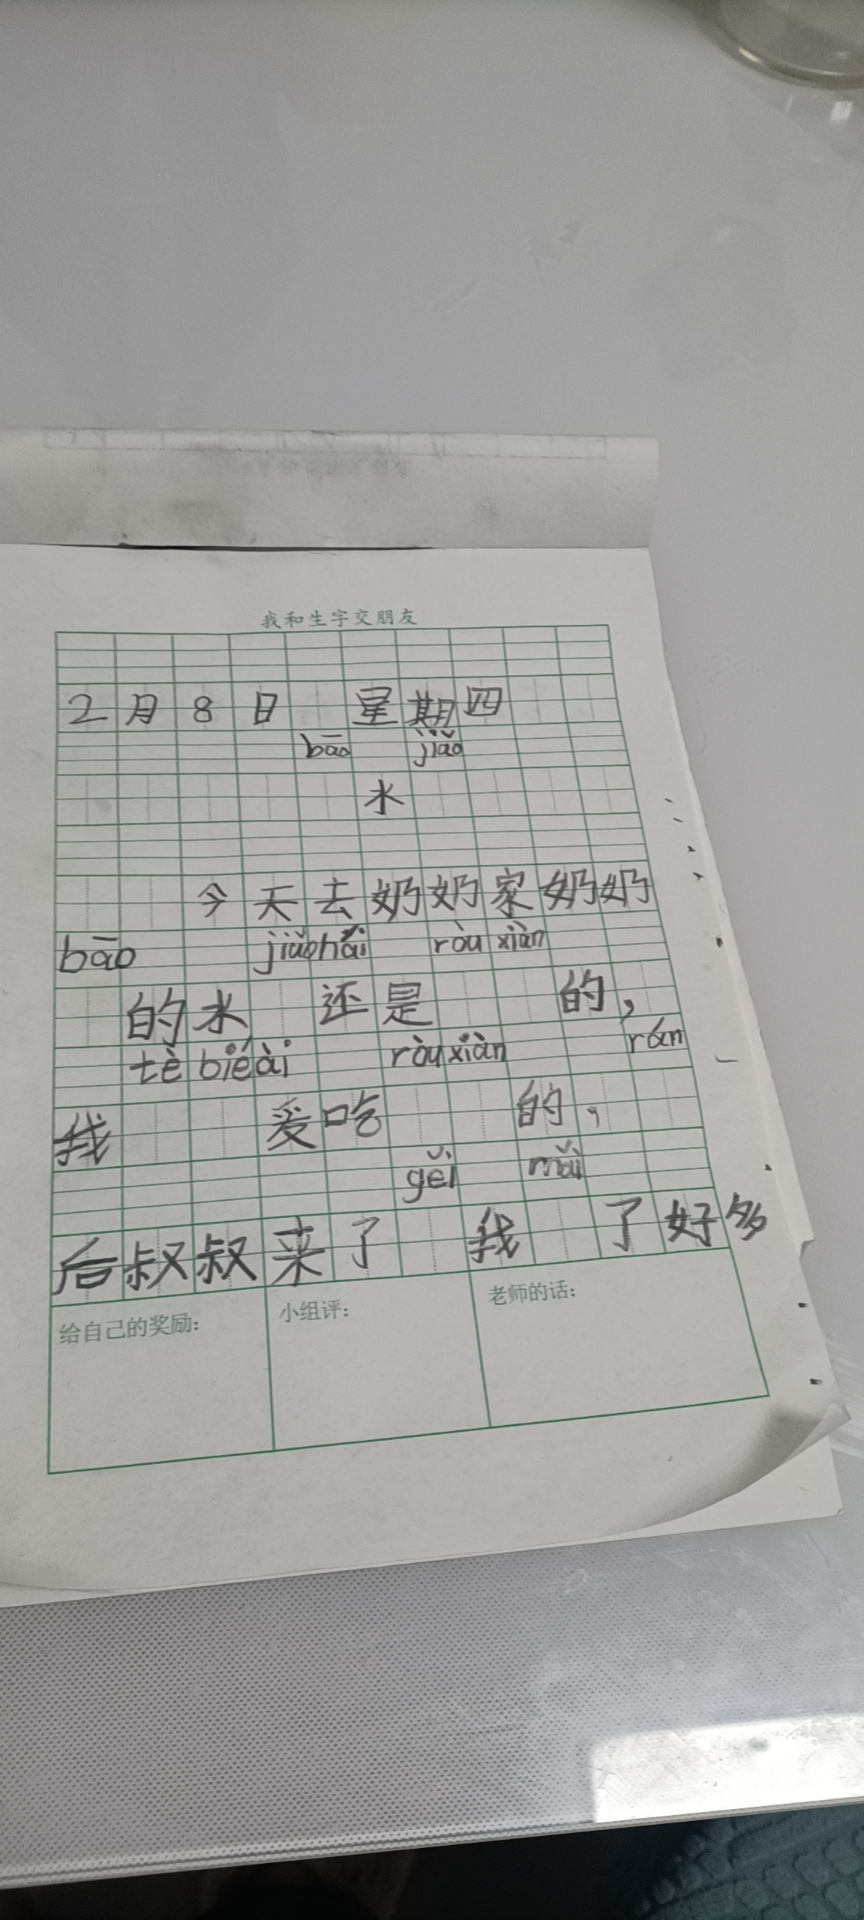 我和生字交朋友
2月8日 星期四
bāo jiǎo
水
今天去奶奶家奶奶
bāo jiǎohái ròu xiàn
的水 还是 的，
tè biéài ròuxiàn rán
我 爱吃 的，
gěi mǎi
后叔叔来了 我 了好多
给自己的奖励: 小组评: 老师的话: